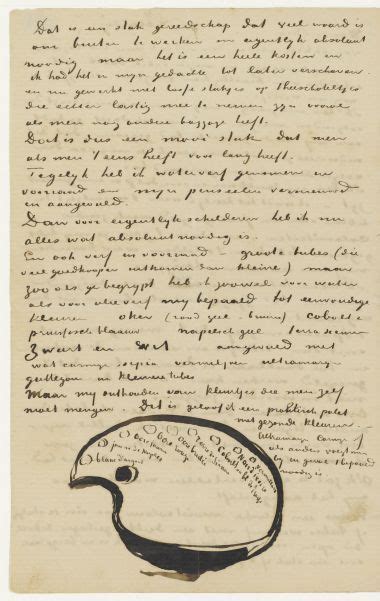 Dat is een stuk gereedschap dat veel waard is
om buiten te werken en eigentlijk absoluut
noodig maar het is een heele kosten en
ik had het in mijn gedachte tot later verschoven
en nu gewerkt met losse stukjes op theeschoteltjes
die echter lastig mee te nemen zijn vooral
als men nog andere bagage heeft.
Doch is dus een mooi stuk dat men
als men 't eens heeft voor lang heeft.
Tegelijk heb ik waterverf genomen in
voorraad en mijn penseelen vernieuwd
en aangevuld.
Dan voor eigentlijk schilderen heb ik nu
alles wat absoluut noodig is.
En ook verf in voorraad – groote tubes (die
veel goedkooper uitkomen dan kleine) maar
zoo als ge begrijpt heb ik zoowel voor water
als voor olieverf mij bepaald tot eenvoudige
kleuren oker (rood geel – bruin) cobalt &
pruissisch blaauw napelsch geel terra sienna
Zwart en wit aangevuld met
wat carmijn sepia vermiljoen ultramarijn
guttegom in kleinere tubes
Maar mij onthouden van kleurtjes die men zelf
moet mengen. Dit is geloof ik een praktisch palet
met gezonde kleuren
Ultramarijn Carmijn of
als anders voegt men
bij in geval 't bepaald
noodig is